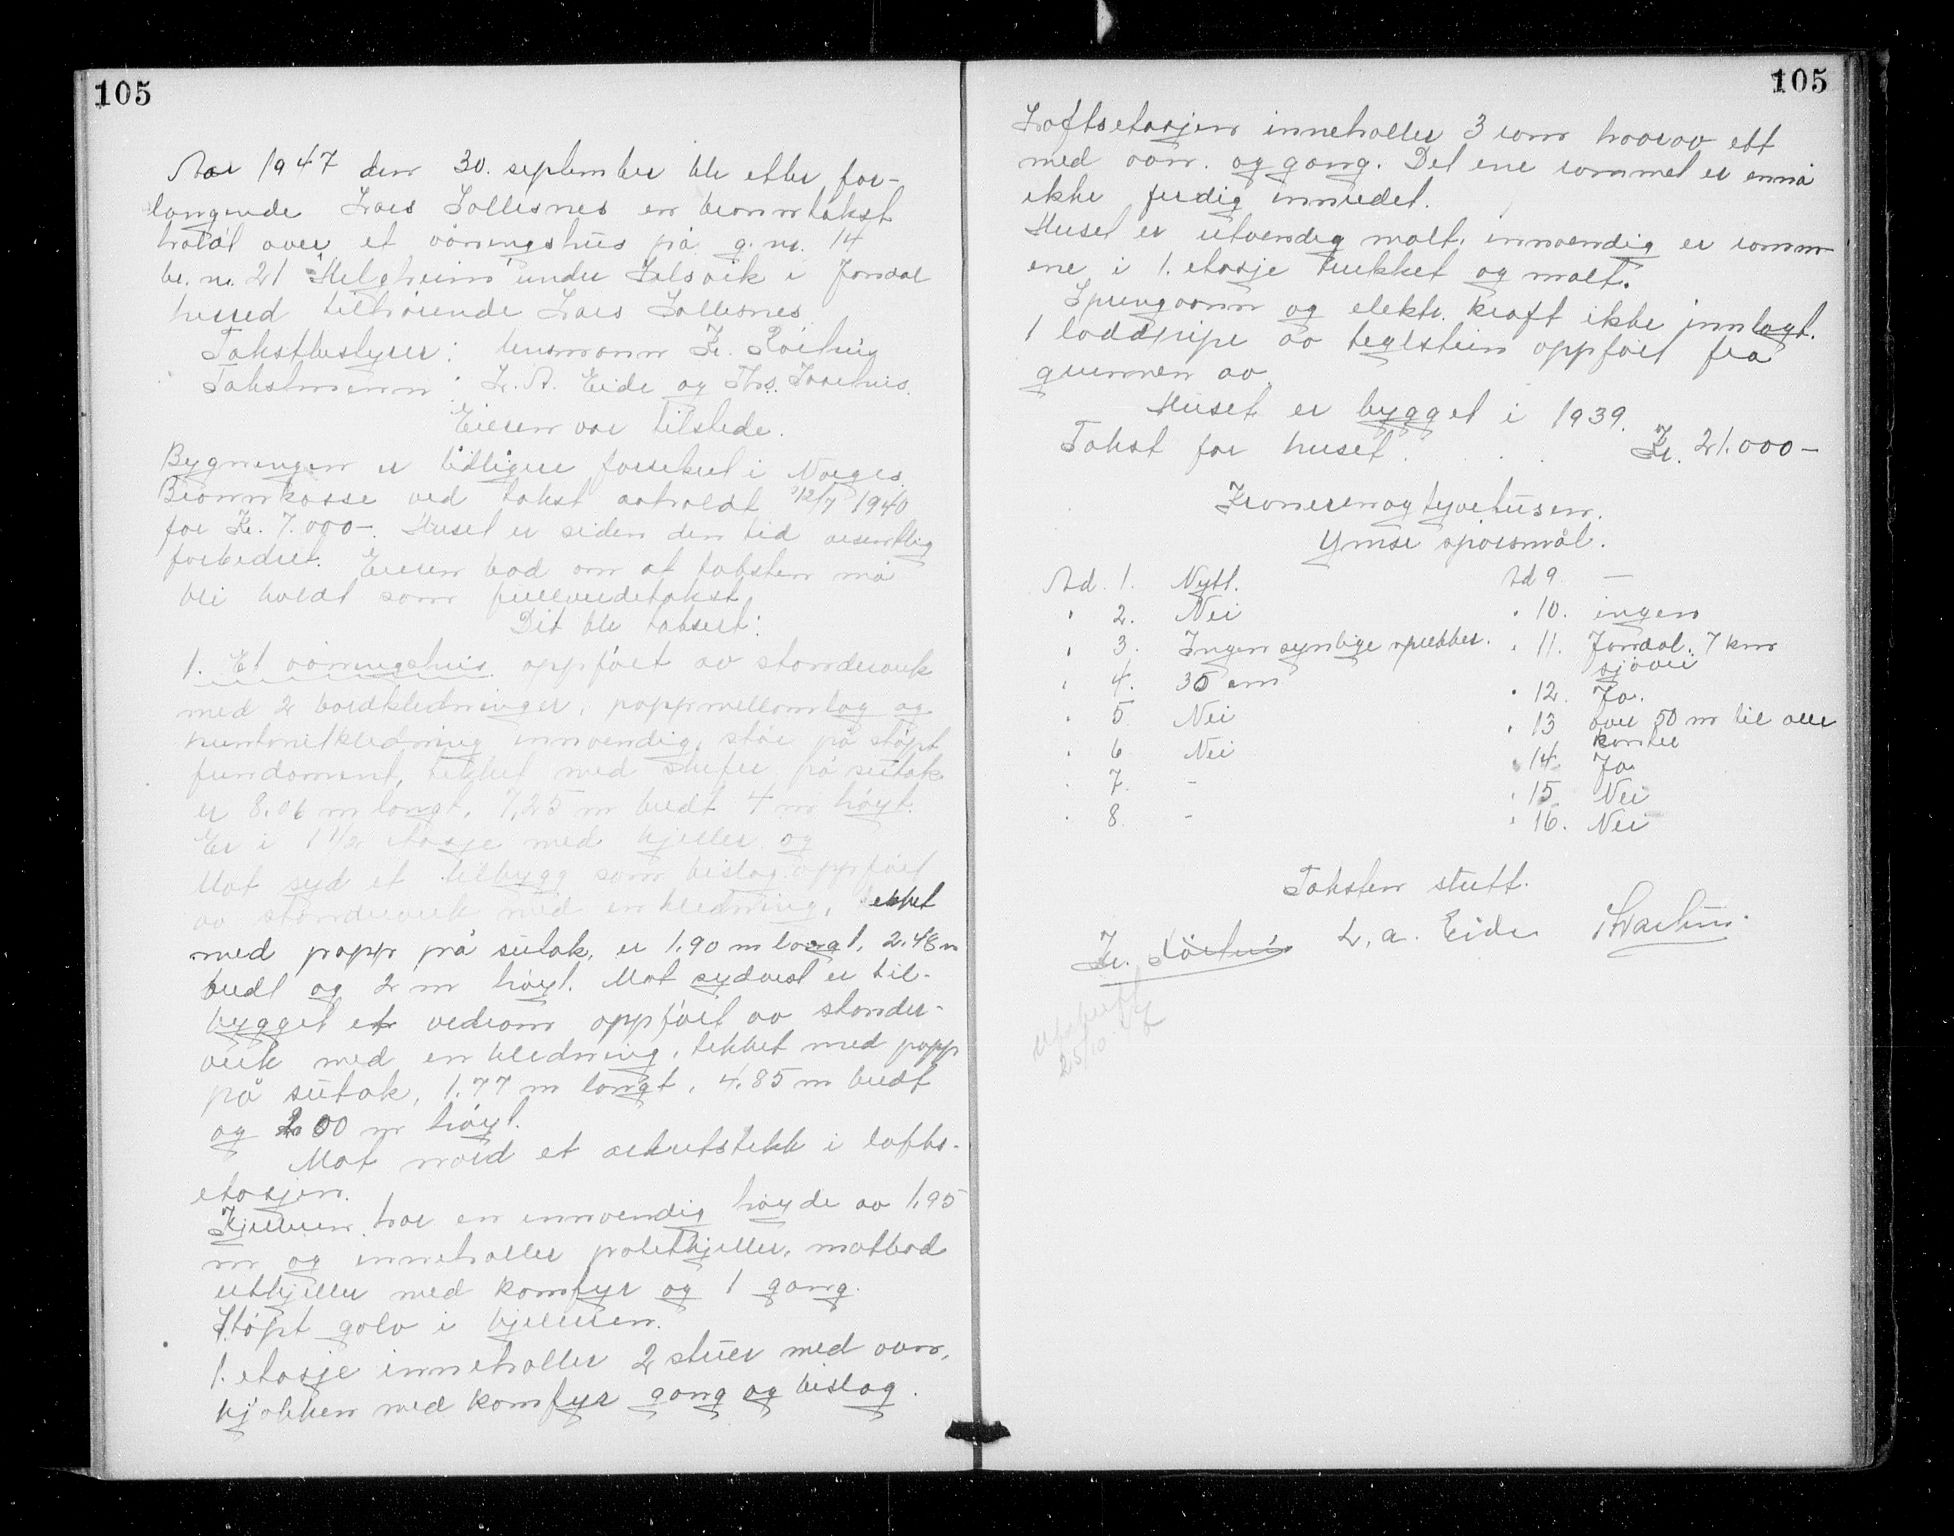 105
Aar 1947 den 30. september ble etter for-
langende Lars Sollesnes en branntakst
holdt over et våningshus på g.nr. 14
br.nr. 21 "Helgheim" under Solsvik i Jondal
herred tilhørende Lars Sollesnes
Takstbestyrer: lensmann Kr.
Takstmenn: L. A. Eide og Ths.
Eieren var tilstede.
Bygningen er tidligere forsikret i Norges
Brannkasse ved takst avholdt 12/7 1940
for Kr. 7.000-. Huset er siden den tid vesentlig
forbedret. Eieren bad om at taksten må
bli holdt som fullverditakst.
Dit ble taksert:
1. Et våningshus oppført av standerverk
med 2 bordkledninger, pappmellomlag og
huntonitkledning innvendig, står på støpt
fundament, tekket med skifer på sutak
er 8.06 m langt, 7,25 m bredt 4 m høyt.
Er i 1 1/2 etasje med kjeller og
Mot syd et tilbygg som bislag oppført
av standerverk med en kledning, tekket
med papp på sutak, er 1.90 m langt, 2.48 m
bredt og 2 m høyt. Mot sydvest er til-
bygget et vedrom oppført av stander-
verk med en kledning, tekket med papp
på sutak, 1.77 m langt, 4.85 m bredt
og 2.00 m høyt.
Mot nord et arkutstikk i lofts-
etasjen.
Kjelleren har en innvendig høyde av 1,95
m og inneholler potetkjeller, matbod
utkjeller med komfyr og 1 gang.
Støpt golv i kjelleren.
1. etasje inneholler 2 stuer med ovn,
kjøkken med komfyr gang og bislag.
105
Loftsetasjen inneholler 3 rom hvorav ett
med ovn. og gang. Det ene rommet er ennå
ikke ferdig innredet.
Huset er utvendig malt, innvendig er romm-
ene i 1. etasje trukket og malt.
Springvann og elektr. kraft ikke innlagt.
1 loddpipe av teglstein oppført fra
grunnen av.
Huset er bygget i 1939.
Takst for huset . . . Kr. 21.000-
Kronerenogtyvetusen.
Ymse spørsmål.
Ad. 1. Nytt. Ad 9. —
" 2. Nei " 10. ingen
" 3. Ingen synlige sprekker. " 11. Jondal. 7 km
sjøvei
" 4. 35 cm " 12. Ja.
" 5. Nei " 13 over 50 m til alle
kanter
" 6. Nei " 14. Ja
" 7. - " 15. Nei
" 8. - " 16. Nei
Taksten slutt.
Kr. L. A. Eide
Utskrift
25/10